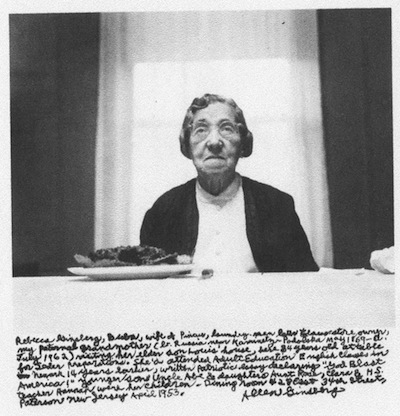 Rebecca Ginsberg, Buba, wife of Pincus, laundry-man later owner,
my Paternal Grandmother (b. Russia near Kaminetz-Podolska May 1869 - d.
July 1962) visiting her elder son Louis's house, here 84 years old at table
for Seder preparations. She'd attended Adult Education English classes in
Newark 14 years earlier, written Patriotic essay declaring: "God Blast
America!" Younger son Uncle Abe & daughters Aunts Rose, Clara & H.S.
teacher Hannah were her children - Dining room 288 East 34th Street,
Paterson New Jersey April 1953.
Allen Ginsberg